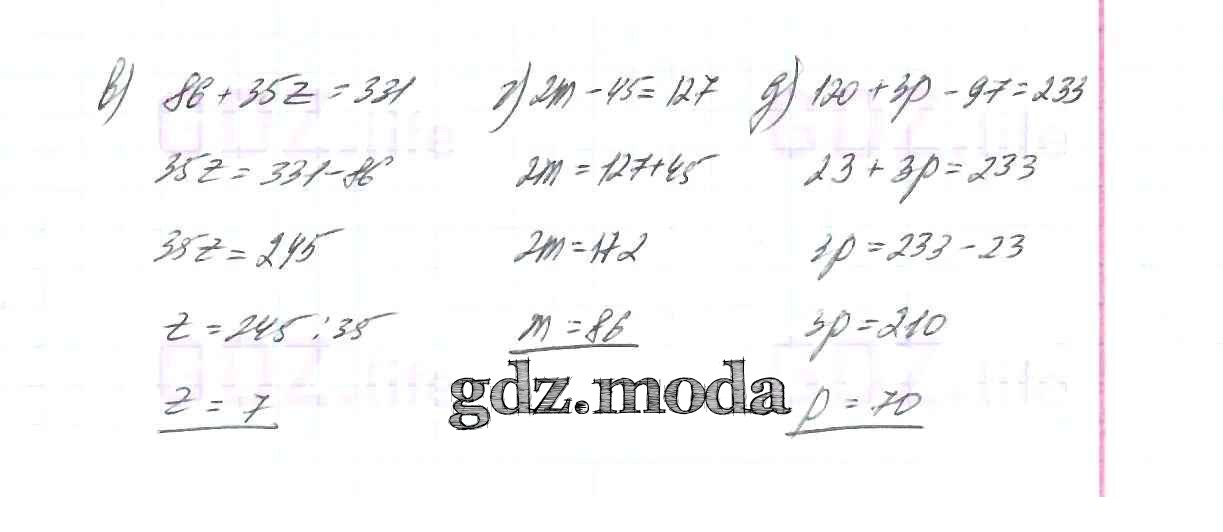 в) 86 + 35z = 331
35z = 331 - 86
35z = 245
z = 245 : 35
z = 7
г) 2m - 45 = 127
2m = 127 + 45
2m = 172
m = 86
д) 120 + 3p - 97 = 233
23 + 3p = 233
3p = 233 - 23
3p = 210
p = 70
gdz.moda